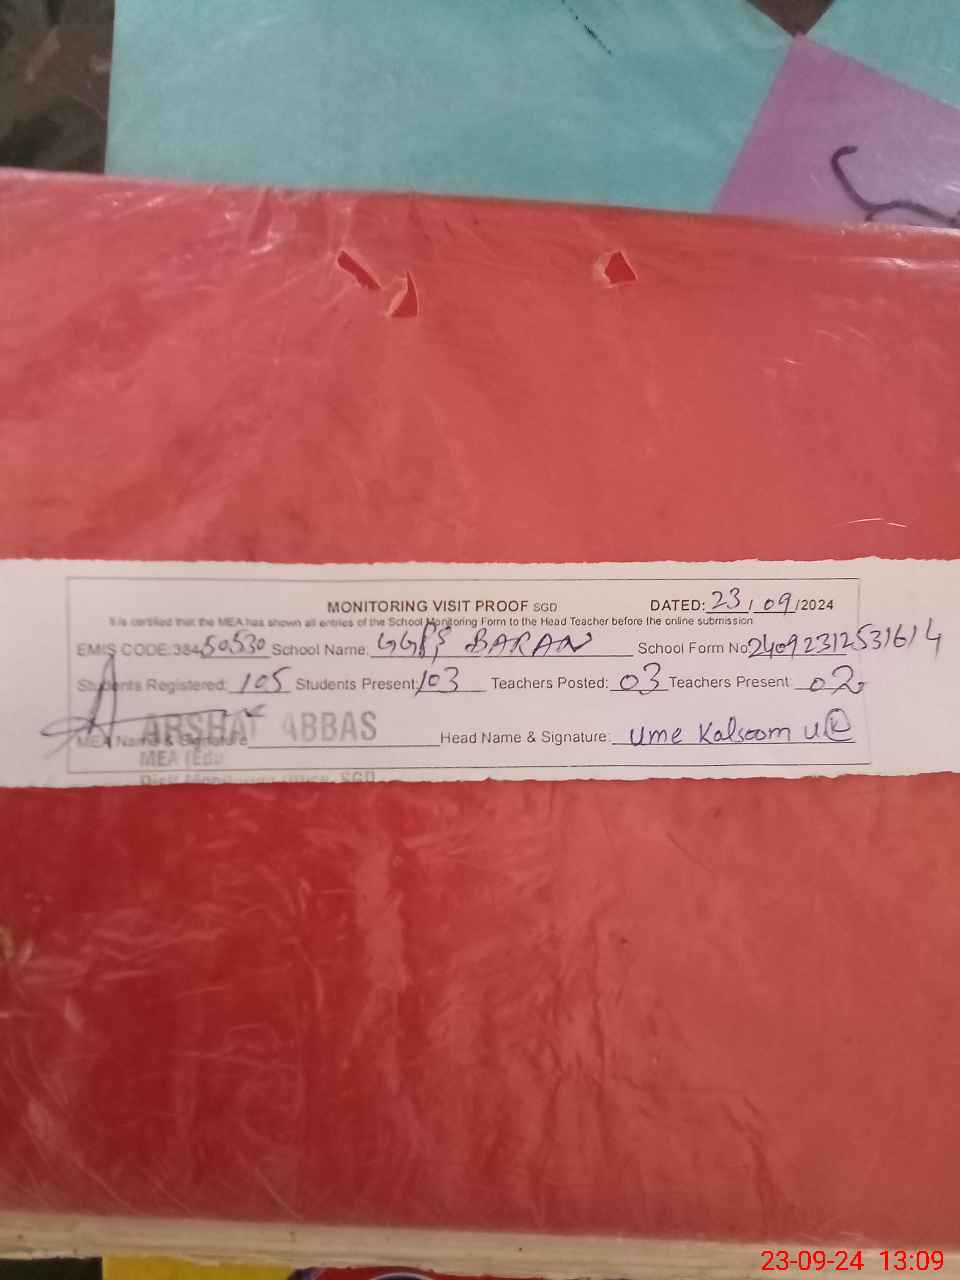 MONITORING VISIT PROOF SGD DATED: 23/09/2024
It is certified that the MEA has shown all entries of the School Monitoring Form to the Head Teacher before the online submission
EMIS CODE:38450530 School Name: GGPS BARAN School Form No 24092312531614
Students Registered: 105 Students Present: 103 Teachers Posted: 03 Teachers Present: 02
MEA Name & Signature ARSHAT ABBAS Head Name & Signature: Ume Kalsoom UK
MEA (Edu
Distt Monitoring Office, SGD
23-09-24 13:09